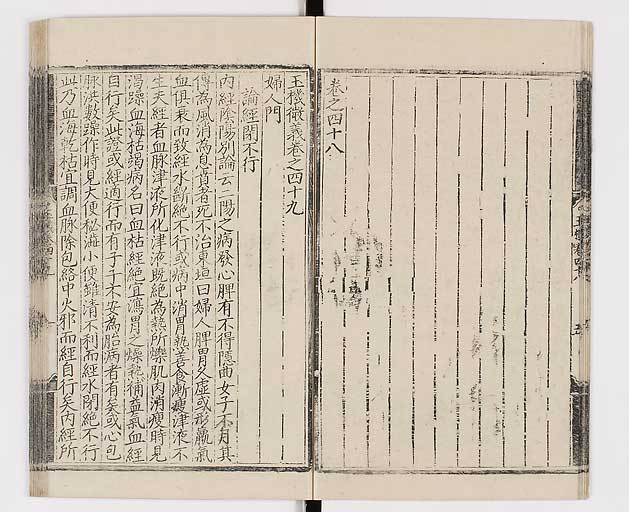 卷之四十八
玉機微義卷之四十九
婦人門
論經閉不行
內經陰陽別論云二陽之病發心脾有不得隱曲女子不月其
傳為風消為息賁者死不治東垣曰婦人脾胃久虛或形羸氣
血俱衰而致經水斷絕不行或病中消胃熱善食漸瘦津液不
生夫經者血脉津液所化津液既絕為熱所爍肌肉消瘦時見
渴躁血海枯竭病名曰血枯經絕宜瀉胃之燥熱補益氣血經
自行矣此證或經適行而有子子不安為胎病者有矣或心包
脉洪數躁作時見大便秘澁小便雖清不利而經水閉絕不行
此乃血海乾枯宜調血脉除包絡中火邪而經自行矣內經所